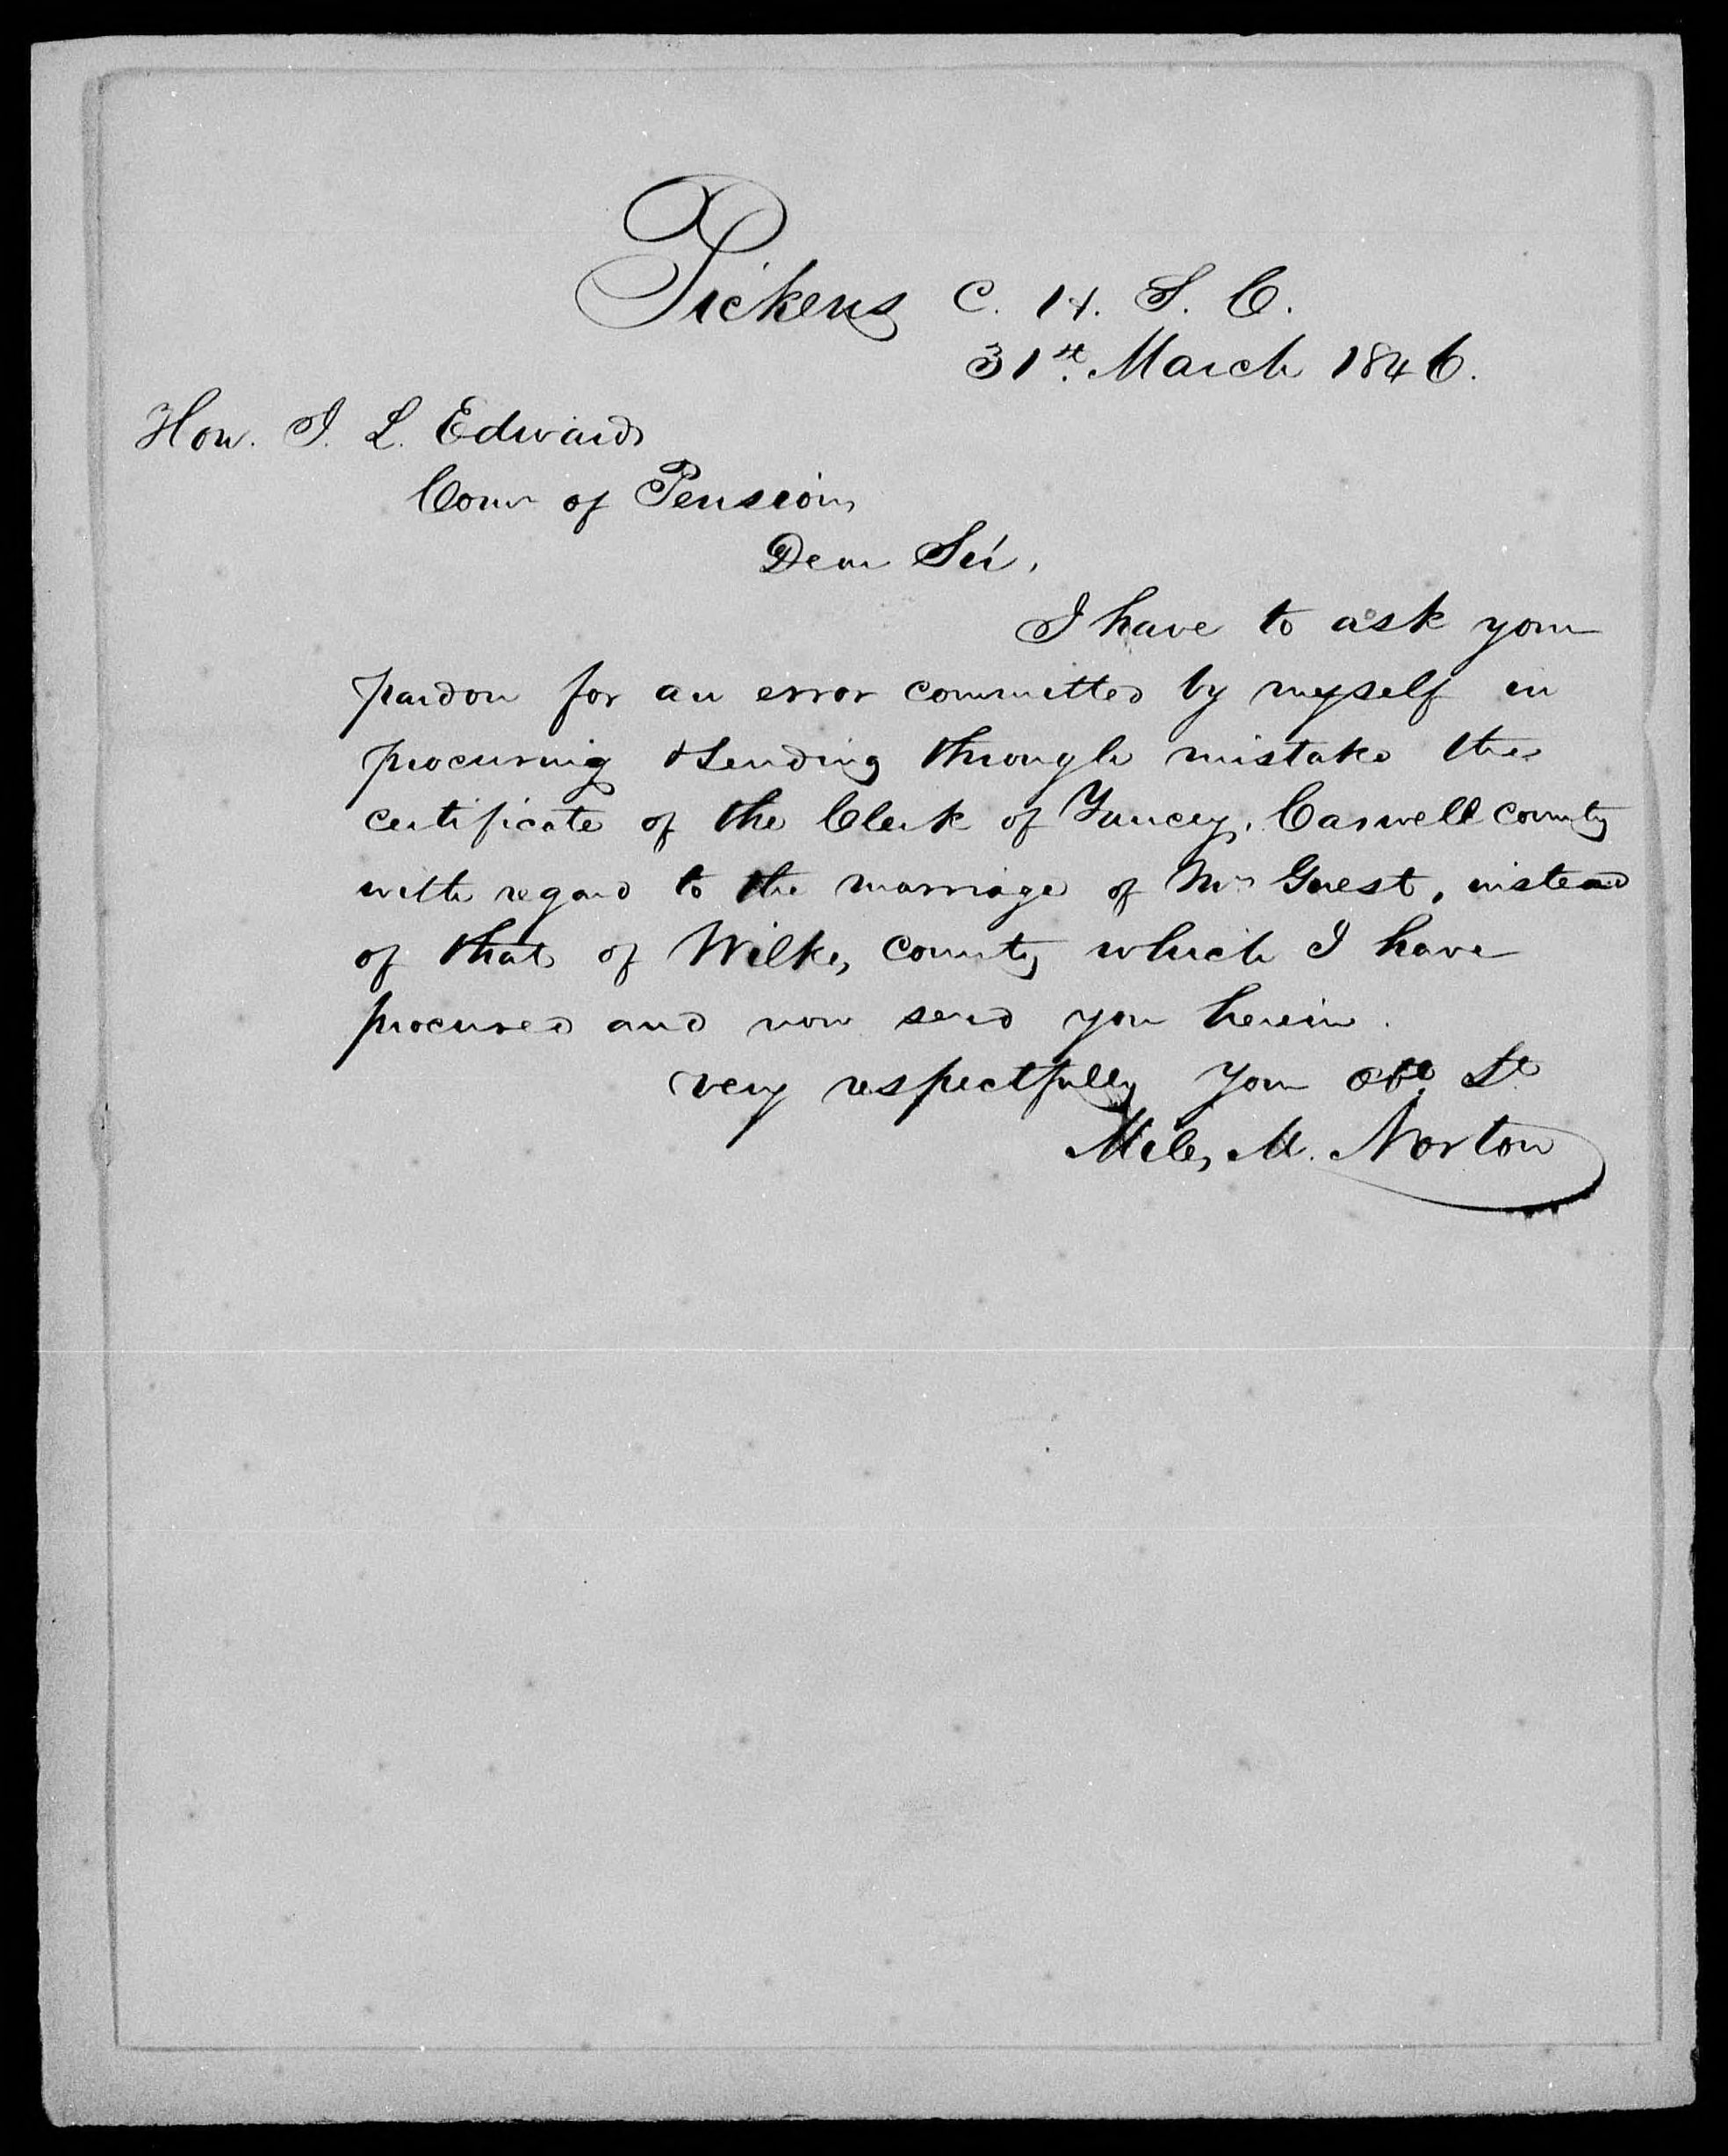 Pickens C. H. S. C.
31st. March 1846.
Hon. J. L. Edwards
Comr of Pensions
Dear Sir,
I have to ask your
pardon for an error committed by myself in
procuring & sending through mistake the
certificate of the Clerk of Yancey, Caswell county
with regard to the marriage of Mrs Guest, instead
of that of Wilkes county which I have
procured and now send you herein.
very respectfully Your obt. St
Miles M. Norton